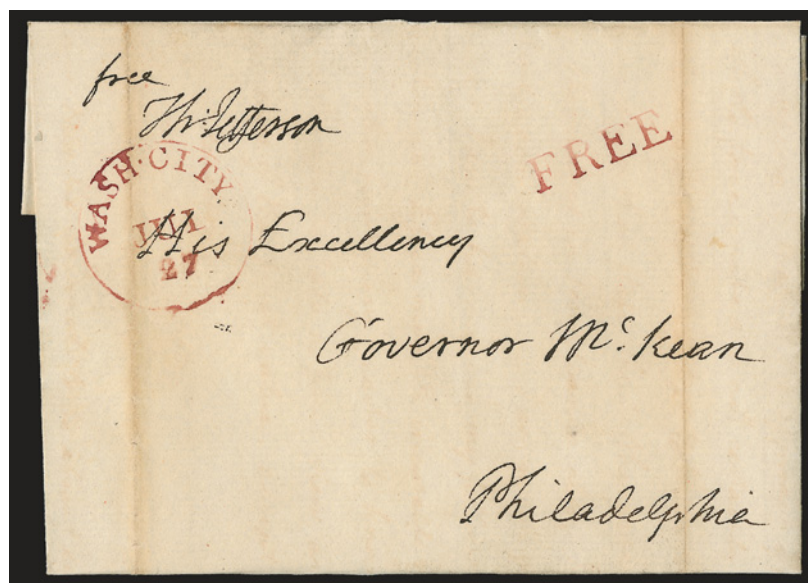 free
Th: Jefferson
FREE
WASH. CITY.
JUL
27
His Excellency
Governor Mc. Kean
Philadelphia